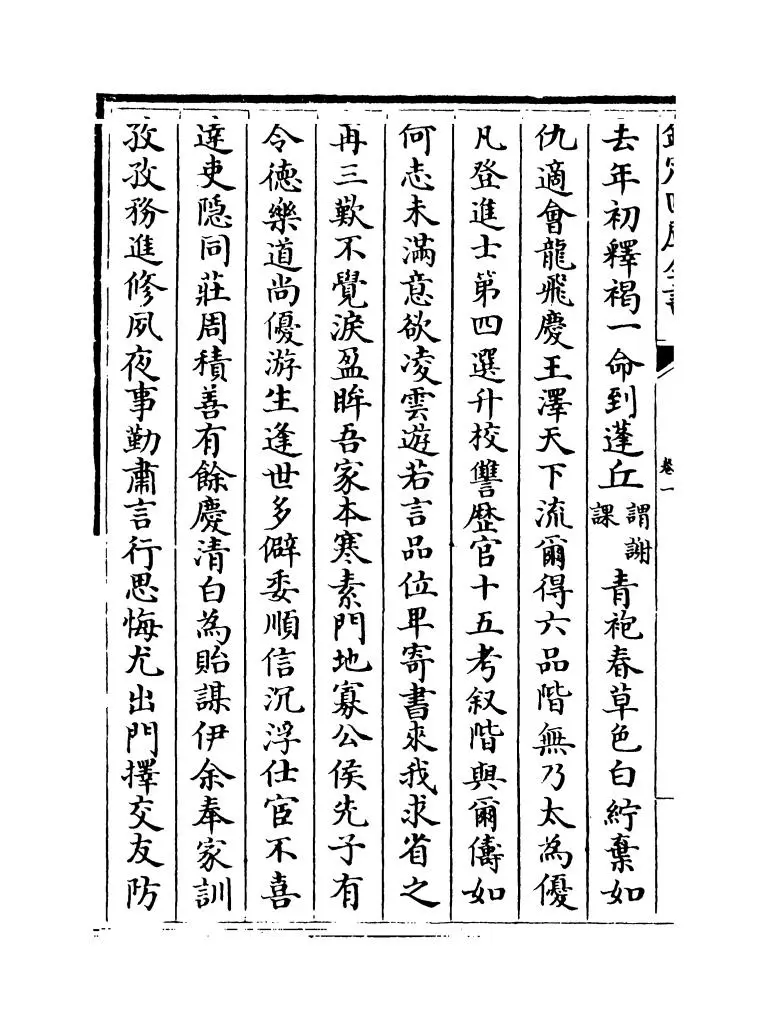 去年初釋褐一命到蓬丘謂謝課青袍春草色白紵棄如
仇適會龍飛慶王澤天下流爾得六品階無乃太為優
凡登進士第四選升校讐歴官十五考叙階與爾儔如
何志未滿意欲凌雲遊若言品位卑寄書來我求省之
再三歎不覺淚盈眸吾家本寒素門地寡公侯先子有
令徳樂道尚優游生逢世多僻委順信沉浮仕宦不喜
達吏隠同莊周積善有餘慶清白為貽謀伊余奉家訓
孜孜務進修夙夜事勤肅言行思悔尤出門擇交友防
卷一